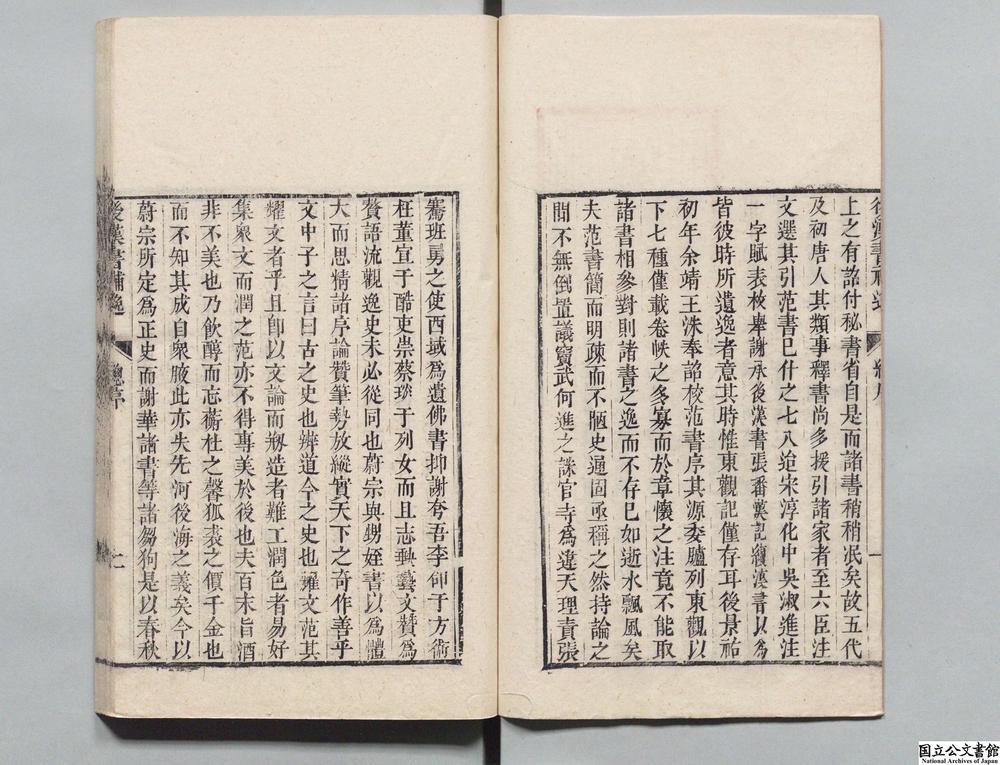 上之有詔付秘書省自是而諸書稍稍泯矣故五代
及初唐人其類事釋書尚多援引諸家者至六臣注
文選其引范書已什之七八迨宋淳化中吳淑進注
一字賦表枚舉謝承後漢書張番漢記續漢書以為
皆彼時所遺逸者意其時惟東觀記僅存耳後景祐
初年余靖王洙奉詔校范書序其源委臚列東觀以
下七種僅載卷帙之多寡而於章懷之注竟不能取
諸書相參對則諸書之逸而不存已如逝水飄風矣
夫范書簡而明疎而不陋史通固亟稱之然持論之
間不無倒置議竇武何進之誅官寺為違天理責張
騫班勇之使西域為遺佛書抑謝夸吾李郃于方術
枉董宣于酷吏祟蔡琰于列女而且志輿藝文贊為
贅語流觀逸史未必從同也蔚宗與甥姪書以為體
大而思精諸序論贊筆勢放縱實天下之奇作善乎
文中子之言曰古之史也辨道今之史也耀文范其
耀文者乎且即以文論而剏造者難工潤色者易好
集衆文而潤之范亦不得專美於後也夫百末旨酒
非不美也乃飲醇而忘蘅杜之馨狐裘之價千金也
而不知其成自衆腋此亦失先河後海之義矣今以
蔚宗所定為正史而謝華諸書等諸芻狗是以春秋
後漢書補逸
總序
二
国立公文書館
National Archives of Japan